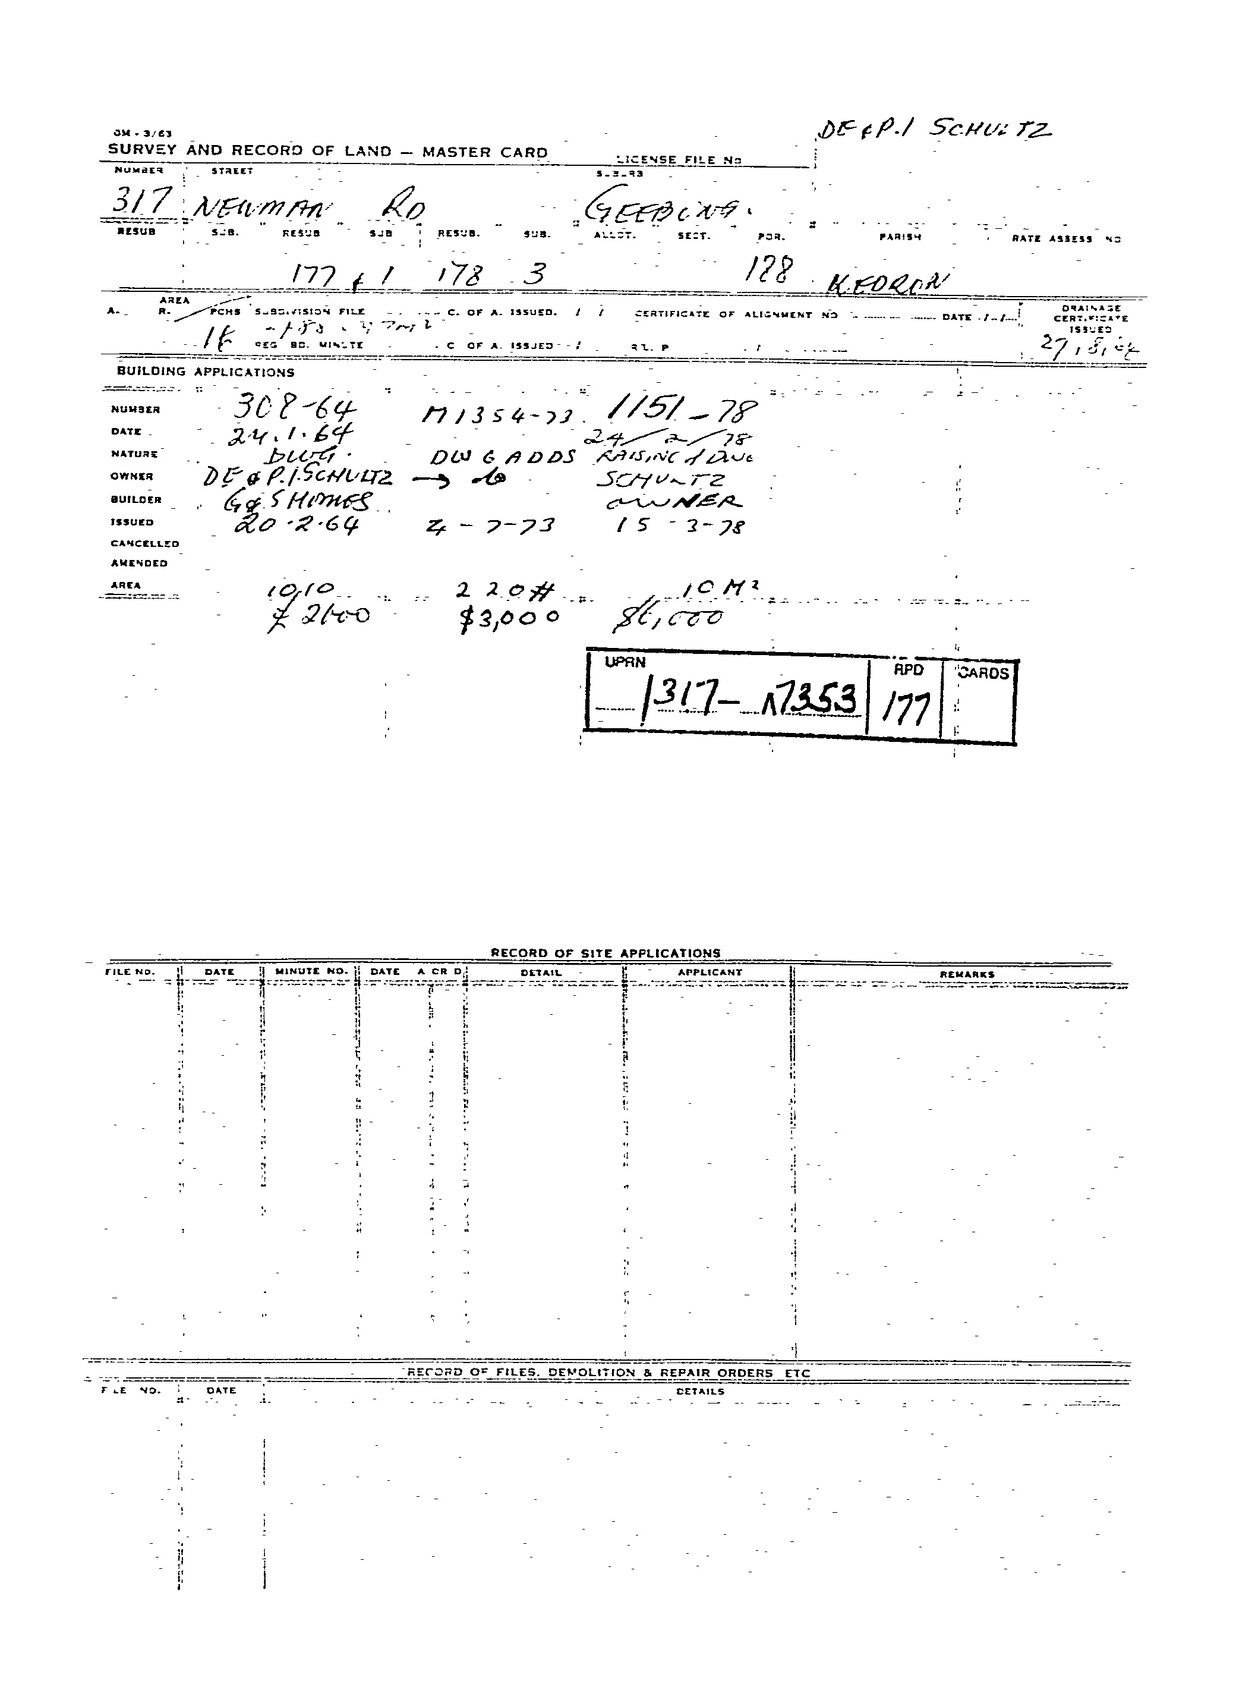 DE & P.I SCHULTZ
OM - 3/63
SURVEY AND RECORD OF LAND — MASTER CARD
LICENSE FILE No
NUMBER STREET
317 NEWMAN RD GEEBUNG.
RESUB SUB. RESUB SUB RESUB. SUB. ALLOT. SECT. POR. PARISH RATE ASSESS NO
177 & 1 178 3 KEDRON
AREA
A. R. PCHS SUBDIVISION FILE C. OF A. ISSUED. / / CERTIFICATE OF ALIGNMENT NO DATE / / DRAINAGE CERTIFICATE ISSUED
16
REG BD. MINUTE C OF A. ISSUED / 27.8.64
BUILDING APPLICATIONS
NUMBER 308-64 M1354-73 1151-78
DATE 24.1.64 24/2/78
NATURE DWG. DWG ADDS RAISING
OWNER DE & P.I.SCHULTZ → do SCHULTZ
BUILDER G&S HOMES OWNER
ISSUED 20.2.64 4-7-73 15-3-78
CANCELLED
AMENDED
AREA 1010 220# 10 M²
$3,000 $6,000
UPRN RPD CARDS
1317- 177
RECORD OF SITE APPLICATIONS
FILE NO. DATE MINUTE NO. DATE A OR D. DETAIL APPLICANT REMARKS
RECORD OF FILES. DEMOLITION & REPAIR ORDERS ETC
FILE NO. DATE DETAILS